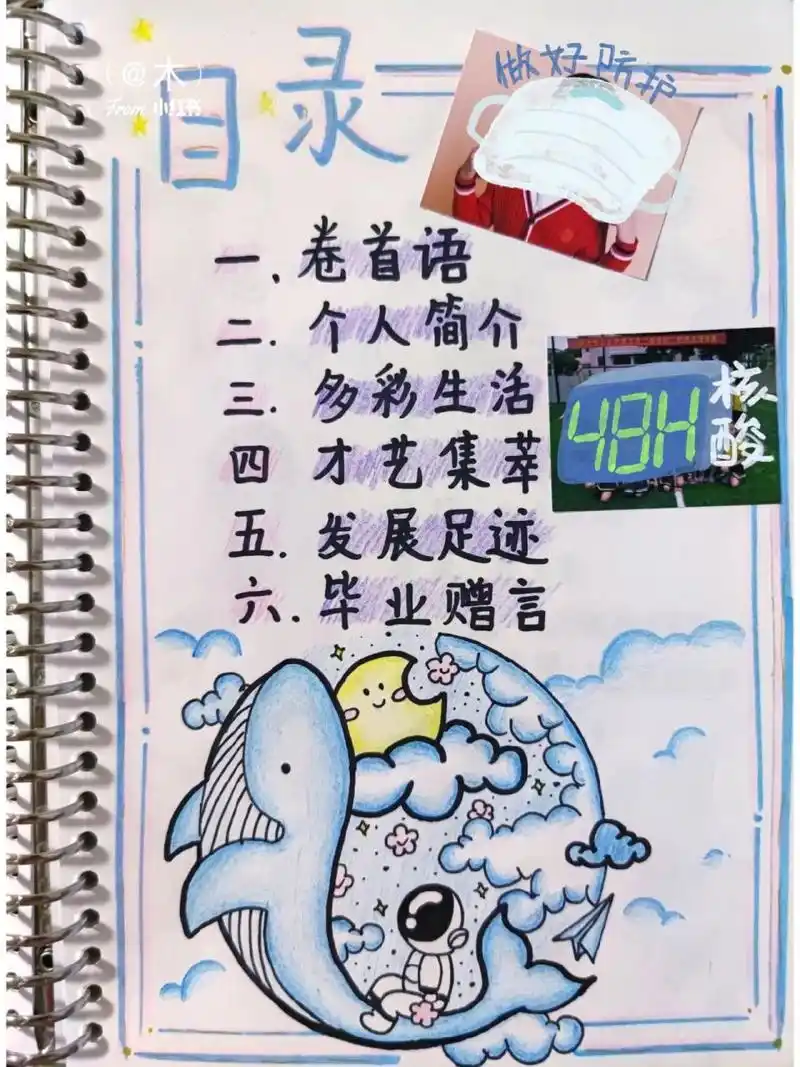 (@木)
From 小红书
目录
做好防护
一、卷首语
二.个人简介
三.多彩生活
48H核酸
四 才艺集萃
五.发展足迹
六.毕业赠言